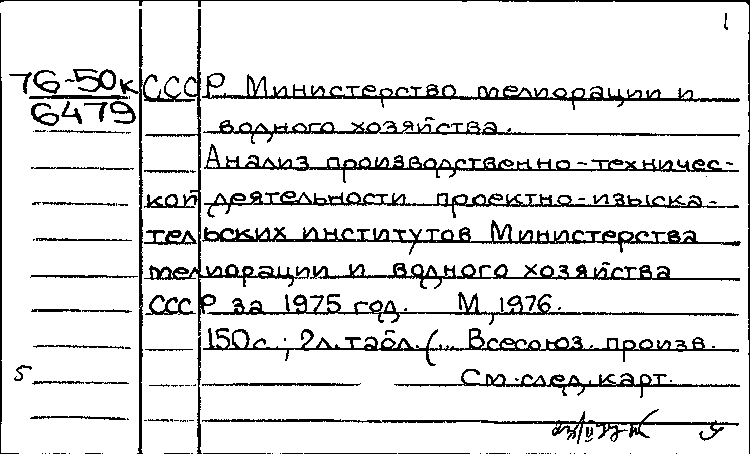 1
76-50к СССР Министерство мелиорации и
6479
водного хозяйства.
Анализ производственно-техничес-
кой деятельности проектно-изыска-
тельских институтов Министерства
мелиорации и водного хозяйства
СССР за 1975 год. М, 1976.
150с.; 2л.табл. (... Всесоюз. произв.
5 См.след. карт.